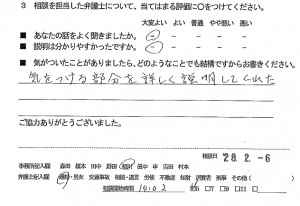 3 相談を担当した弁護士について、当てはまる評価に○をつけてください。
大変よい よい 普通 やや悪い 悪い
■ あなたの話をよく聞きましたか。
■ 説明は分かりやすかったですか。
■ 気がついたことがありましたら、どのようなことでも結構ですからお書きください。
気をつける部分を詳しく説明してくれた
ご協力ありがとうございました。
相談日 '28.2.-6
事務所記入欄
弁護士記入欄 男女 交通事故 相続・遺言 労使 不動産 知財 消費者 刑事 その他( )
相談開始時間 14:02